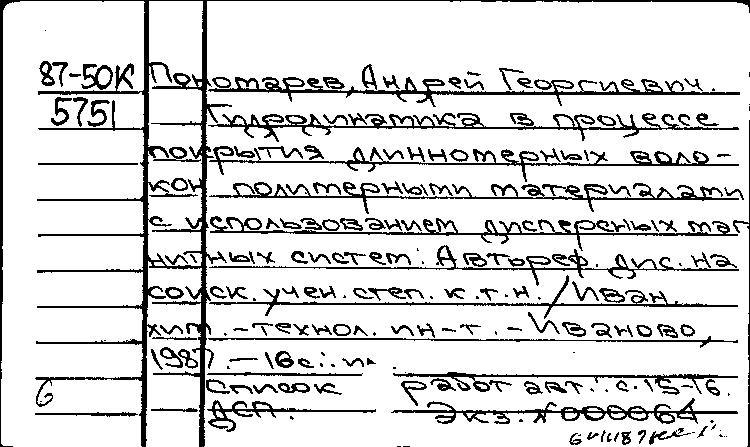 87-50К Пономарев, Андрей Георгиевич.
5751 Гидродинамика в процессе
покрытия длинномерных воло-
кон полимерными материалами
с использованием дисперсных маг
нитных систем: Автореф. дис. на
соиск. учен. степ. к.т.н. / Иван.
хим.-технол. ин-т. - Иваново,
1987. - 16с.: ил
Список работ авт.: с. 15-16.
6 ДСП. Экз. N 000064